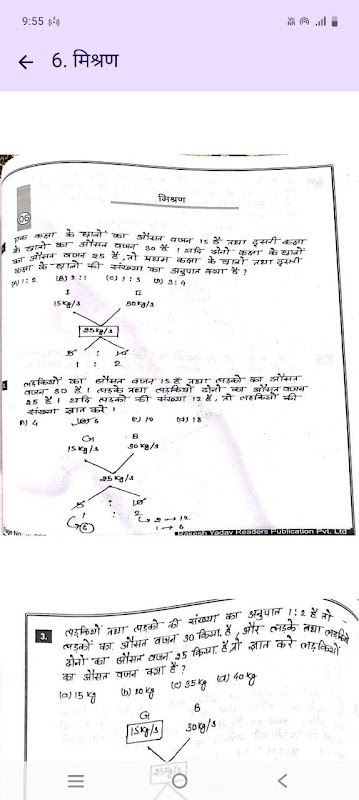 9:55
6. मिश्रण
06
मिश्रण
एक कक्षा के छात्रों का औसत वजन 15 है तथा दूसरी कक्षा
के छात्रों का औसत वजन 30 है । यदि दोनों कक्षा के छात्रों
का औसत वजन 25 है, तो प्रथम कक्षा के छात्रों तथा दूसरी
कक्षा के छात्रों की संख्या का अनुपात क्या है ?
(A) 1 : 2 (B) 2 : 1 (C) 1 : 3 (D) 3 : 4
I II
15kg/s 30kg/s
25kg/s
5 : 10
1 : 2
लड़कियों का औसत वजन 15 है तथा लड़कों का औसत
वजन 30 है । लड़के तथा लड़कियों दोनों का औसत वजन
25 है । यदि लड़कों की संख्या 12 है, तो लड़कियों की
संख्या ज्ञात करें ।
A) 4 6 19 (d) 18
G B
15kg/s 30kg/s
25kg/s
5 : 10
1 : 2
6 2 → 12
1 → 6
Rakesh Yadav Readers Publication Pvt. Ltd
3. लड़कियों तथा लड़कों की संख्या का अनुपात 1 : 2 है तो
लड़कों का औसत वजन 30 किग्रा. है, और लड़के तथा लड़कियों
दोनों का औसत वजन 25 किग्रा. है, तो ज्ञात करें लड़कियों
का औसत वजन क्या है ?
(a) 15 kg (b) 20 kg (c) 35 kg (d) 40 kg
G B
15kg/s 30kg/s
25kg/s